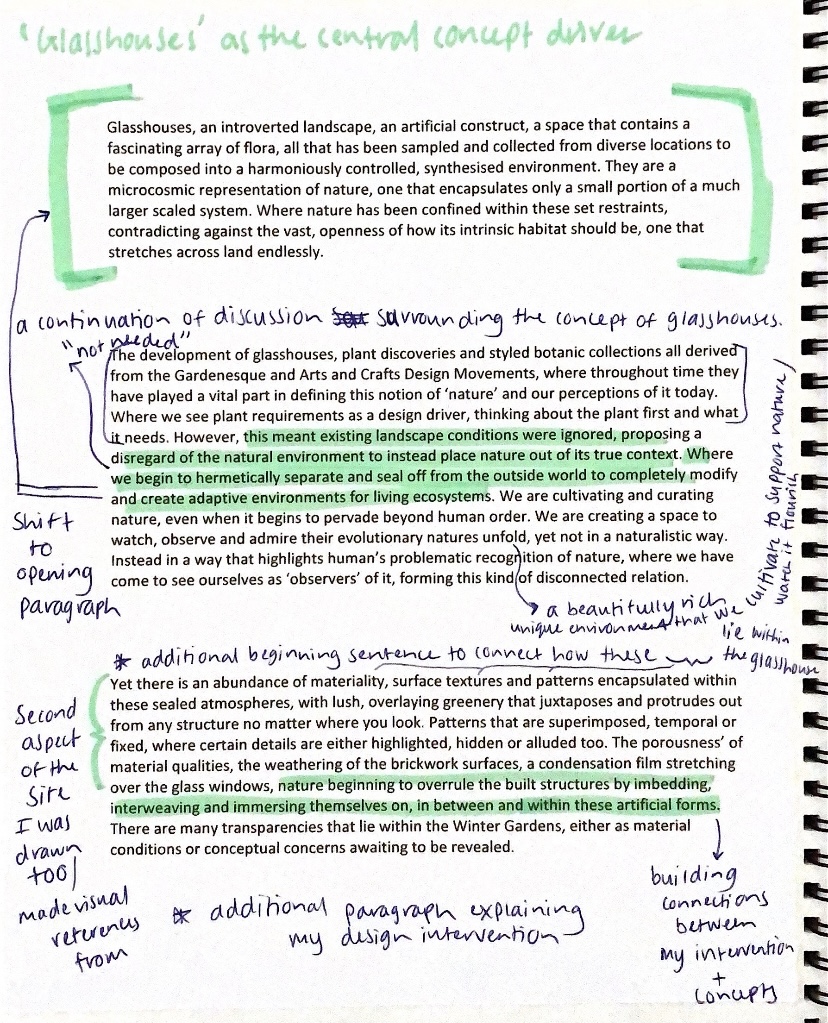 'Glasshouses' as the central concept driver
Glasshouses, an introverted landscape, an artificial construct, a space that contains a
fascinating array of flora, all that has been sampled and collected from diverse locations to
be composed into a harmoniously controlled, synthesised environment. They are a
microcosmic representation of nature, one that encapsulates only a small portion of a much
larger scaled system. Where nature has been confined within these set restraints,
contradicting against the vast, openness of how its intrinsic habitat should be, one that
stretches across land endlessly.
a continuation of discussion surrounding the concept of glasshouses.
"not needed"
The development of glasshouses, plant discoveries and styled botanic collections all derived
from the Gardenesque and Arts and Crafts Design Movements, where throughout time they
have played a vital part in defining this notion of 'nature' and our perceptions of it today.
Where we see plant requirements as a design driver, thinking about the plant first and what
it needs. However, this meant existing landscape conditions were ignored, proposing a
disregard of the natural environment to instead place nature out of its true context. Where
we begin to hermetically separate and seal off from the outside world to completely modify
and create adaptive environments for living ecosystems. We are cultivating and curating
nature, even when it begins to pervade beyond human order. We are creating a space to
watch, observe and admire their evolutionary natures unfold, yet not in a naturalistic way.
Instead in a way that highlights human's problematic recognition of nature, where we have
come to see ourselves as 'observers' of it, forming this kind of disconnected relation.
Shift
to
opening
paragraph
a beautifully rich
unique environment that we
cultivate to support nature/
watch it flourish
lie within
the glasshouse
* additional beginning sentence to connect how these
Yet there is an abundance of materiality, surface textures and patterns encapsulated within
these sealed atmospheres, with lush, overlaying greenery that juxtaposes and protrudes out
from any structure no matter where you look. Patterns that are superimposed, temporal or
fixed, where certain details are either highlighted, hidden or alluded too. The porousness' of
material qualities, the weathering of the brickwork surfaces, a condensation film stretching
over the glass windows, nature beginning to overrule the built structures by imbedding,
interweaving and immersing themselves on, in between and within these artificial forms.
There are many transparencies that lie within the Winter Gardens, either as material
conditions or conceptual concerns awaiting to be revealed.
Second
aspect
of the
site
I was
drawn
too/
made visual
references
from
* additional paragraph explaining
my design intervention
building
connections
between
my intervention
+
concepts